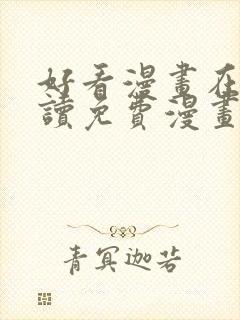 好看漫畫在
讀免費漫畫
青冥迦若